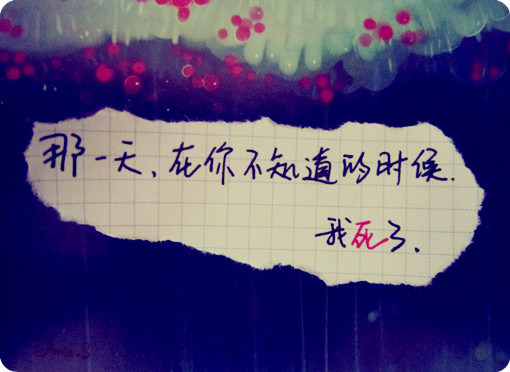 那一天、在你不知道的时候.
我死了.